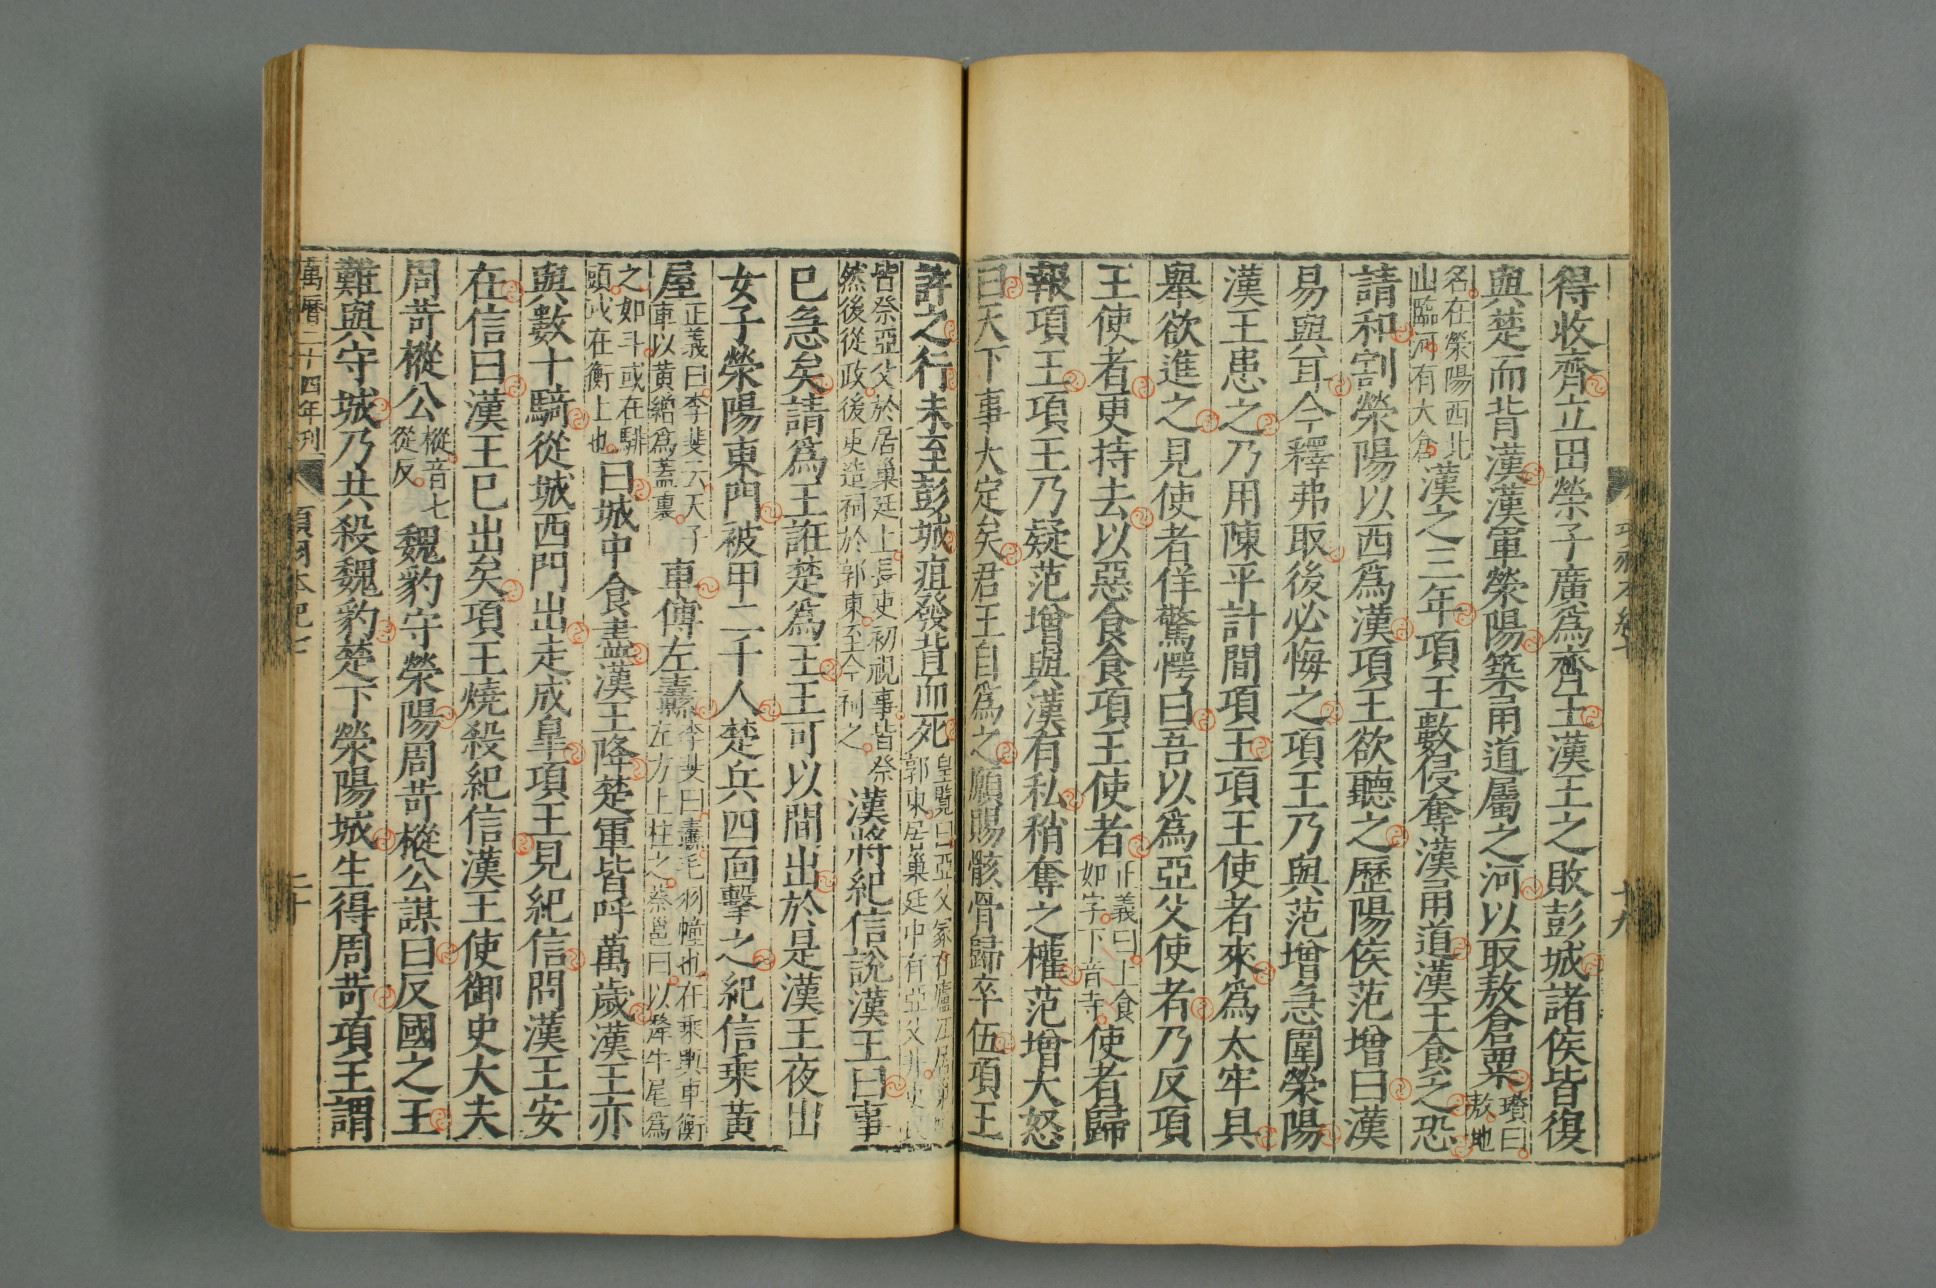 得收齊立田榮子廣爲齊王漢王之敗彭城諸侯皆復
與楚而背漢漢軍榮陽築甬道屬之河以取敖倉粟瓚曰敖地
名在榮陽西北山臨河有大倉漢之三年項王數侵奪漢甬道漢王食乏恐
請和割榮陽以西爲漢項王欲聽之歷陽侯范增曰漢
易與耳今釋弗取後必悔之項王乃與范增急圍榮陽
漢王患之乃用陳平計間項王項王使者來爲太牢具
舉欲進之見使者佯驚愕曰吾以爲亞父使者乃反項
王使者更持去以惡食食項王使者正義曰上食如字下音寺使者歸
報項王項王乃疑范增與漢有私稍奪之權范增大怒
曰天下事大定矣君王自爲之願賜骸骨歸卒伍項王
許之行未至彭城疽發背而死皇覽曰亞父冢在廬江居巢郭東居巢廷中有亞父井吏
皆祭亞父於居巢廷上長吏初視事皆祭然後從政後更造祠於郭東至今祠之漢將紀信說漢王曰事
巳急矣請爲王誑楚爲王王可以間出於是漢王夜出
女子榮陽東門被甲二千人楚兵四面擊之紀信乘黃
屋正義曰李斐云天子車以黃繒爲蓋裏車傅左纛李斐曰纛毛羽幢也在乘輿車衡左方上柱之蔡邕曰以犛牛尾爲
之如斗或在騑頭或在衡上也曰城中食盡漢王降楚軍皆呼萬歲漢王亦
與數十騎從城西門出走成皋項王見紀信問漢王安
在信曰漢王巳出矣項王燒殺紀信漢王使御史大夫
周苛樅公樅音七從反魏豹守榮陽周苛樅公謀曰反國之王
難與守城乃共殺魏豹楚下榮陽城生得周苛項王謂
萬曆二十四年刊 項羽本紀七 二十